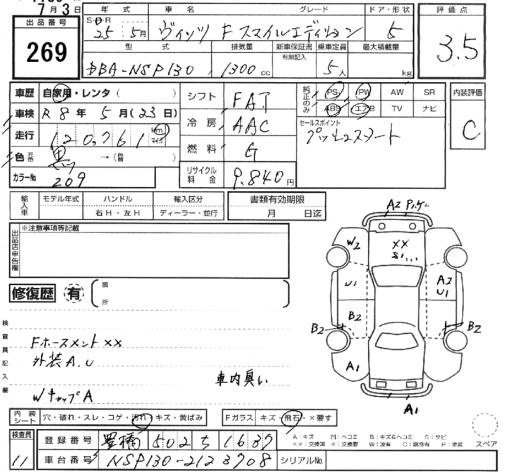 7月3日
出品番号
269
年式 車名 グレード ドア・形状
25 5月 ヴィッツ Fスマイルエディション 5
型式 排気量 新車保証書 乗車定員 最大積載量
有無記入
DBA-NSP130 1300cc 5人 kg
評価点
3.5
車歴 自家用・レンタ( )
車検 R8年5月(23日)
走行 120,761 km マイル
色 黒 →( )
カラーNo 209
シフト FAT
冷房 AAC
燃料 G
リサイクル料金 9,840円
純正のみ PS PW AW SR
ABS エアB TV ナビ
セールスポイント
プッシュスタート
内装評価
C
輸入車 モデル年式 ハンドル 輸入区分
右H・左H ディーラー・並行
書類有効期限
月 日迄
出品店申告欄
※注意事項等記載
修復歴 有 箇所
検査員記入欄
Fホースメント××
外装A.U
車内臭い
WキャップA
A2
W2
××
U1
A2
U1
B2
B2
A1
A1
A1
内装シート 穴・破れ・スレ・コゲ・汚れ・キズ・黄ばみ
Fガラス キズ・飛石・×要す
スペア
検査員
11
登録番号 豊橋 502 ち 1637
車台番号 NSP130-2123708
シリアルNo